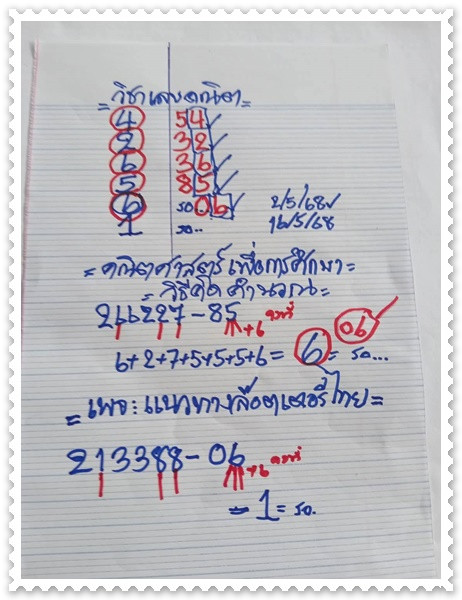 = วิชาเลขคณิต =
4 54 ✓
2 32 ✓
6 36 ✓
5 85 ✓
6 รอ.. 06 ✓ 2/5/68
1 รอ... 16/5/68
= คณิตศาสตร์เพื่อการศึกษา =
= วิธีคิดคำนวณ =
266227 - 85 +6 คงที่ 06
6+2+7+5+5+5+6 = 6 = รอ...
= เพจ : แนวทางล็อตเตอรี่ไทย =
213388 - 06 +6 คงที่
= 1 = รอ.